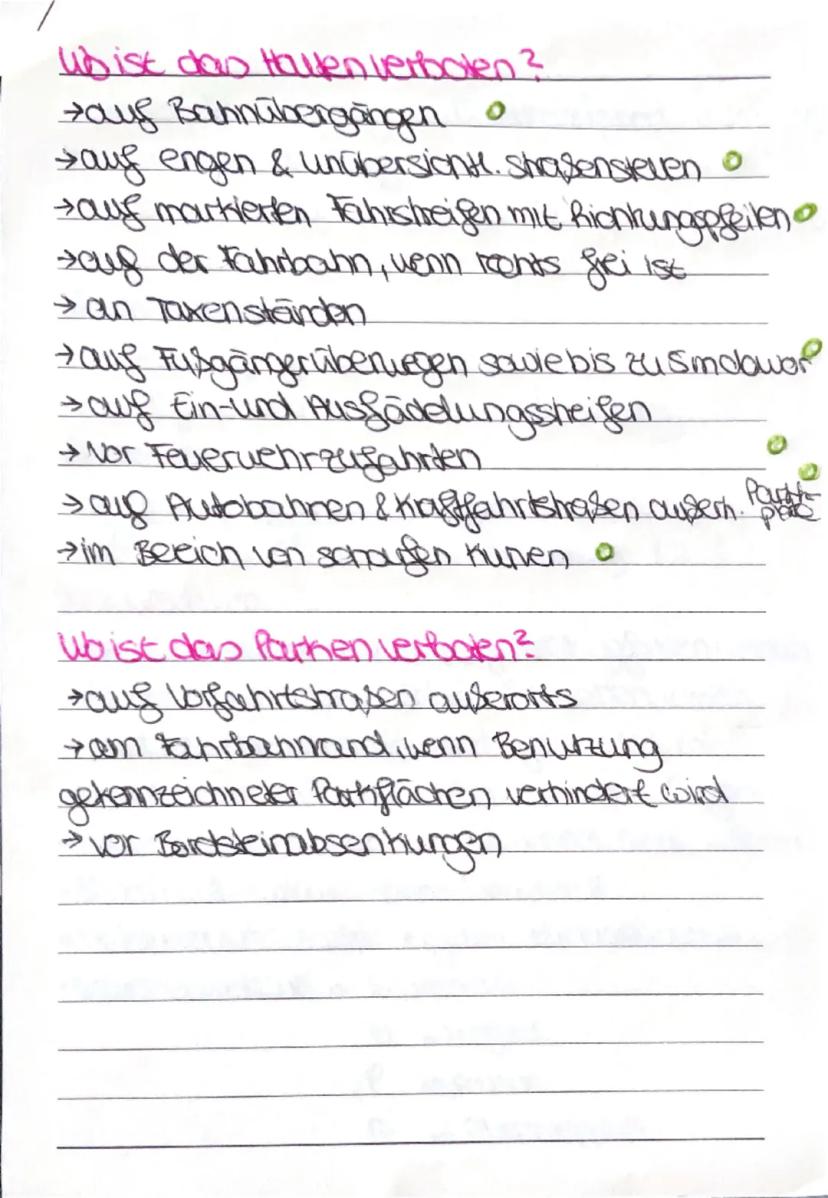 Wo ist das Halten verboten?
→ auf Bahnübergängen
→ auf engen & unübersichtl. Straßenstellen
→ auf markierten Fahrstreifen mit Richtungspfeilen
→ auf der Fahrbahn, wenn rechts frei ist
→ an Taxenständen
→ auf Fußgängerüberwegen sowie bis zu 5m davor
→ auf Ein- und Ausfädelungsstreifen
→ vor Feuerwehrzufahrten
→ auf Autobahnen & Kraftfahrtstraßen außerh. Parkplatz
→ im Bereich von scharfen Kurven
Wo ist das Parken verboten?
→ auf Vorfahrtstraßen außerorts
→ am Fahrbahnrand, wenn Benutzung
gekennzeichneter Parkflächen verhindert wird
→ vor Bordsteinabsenkungen